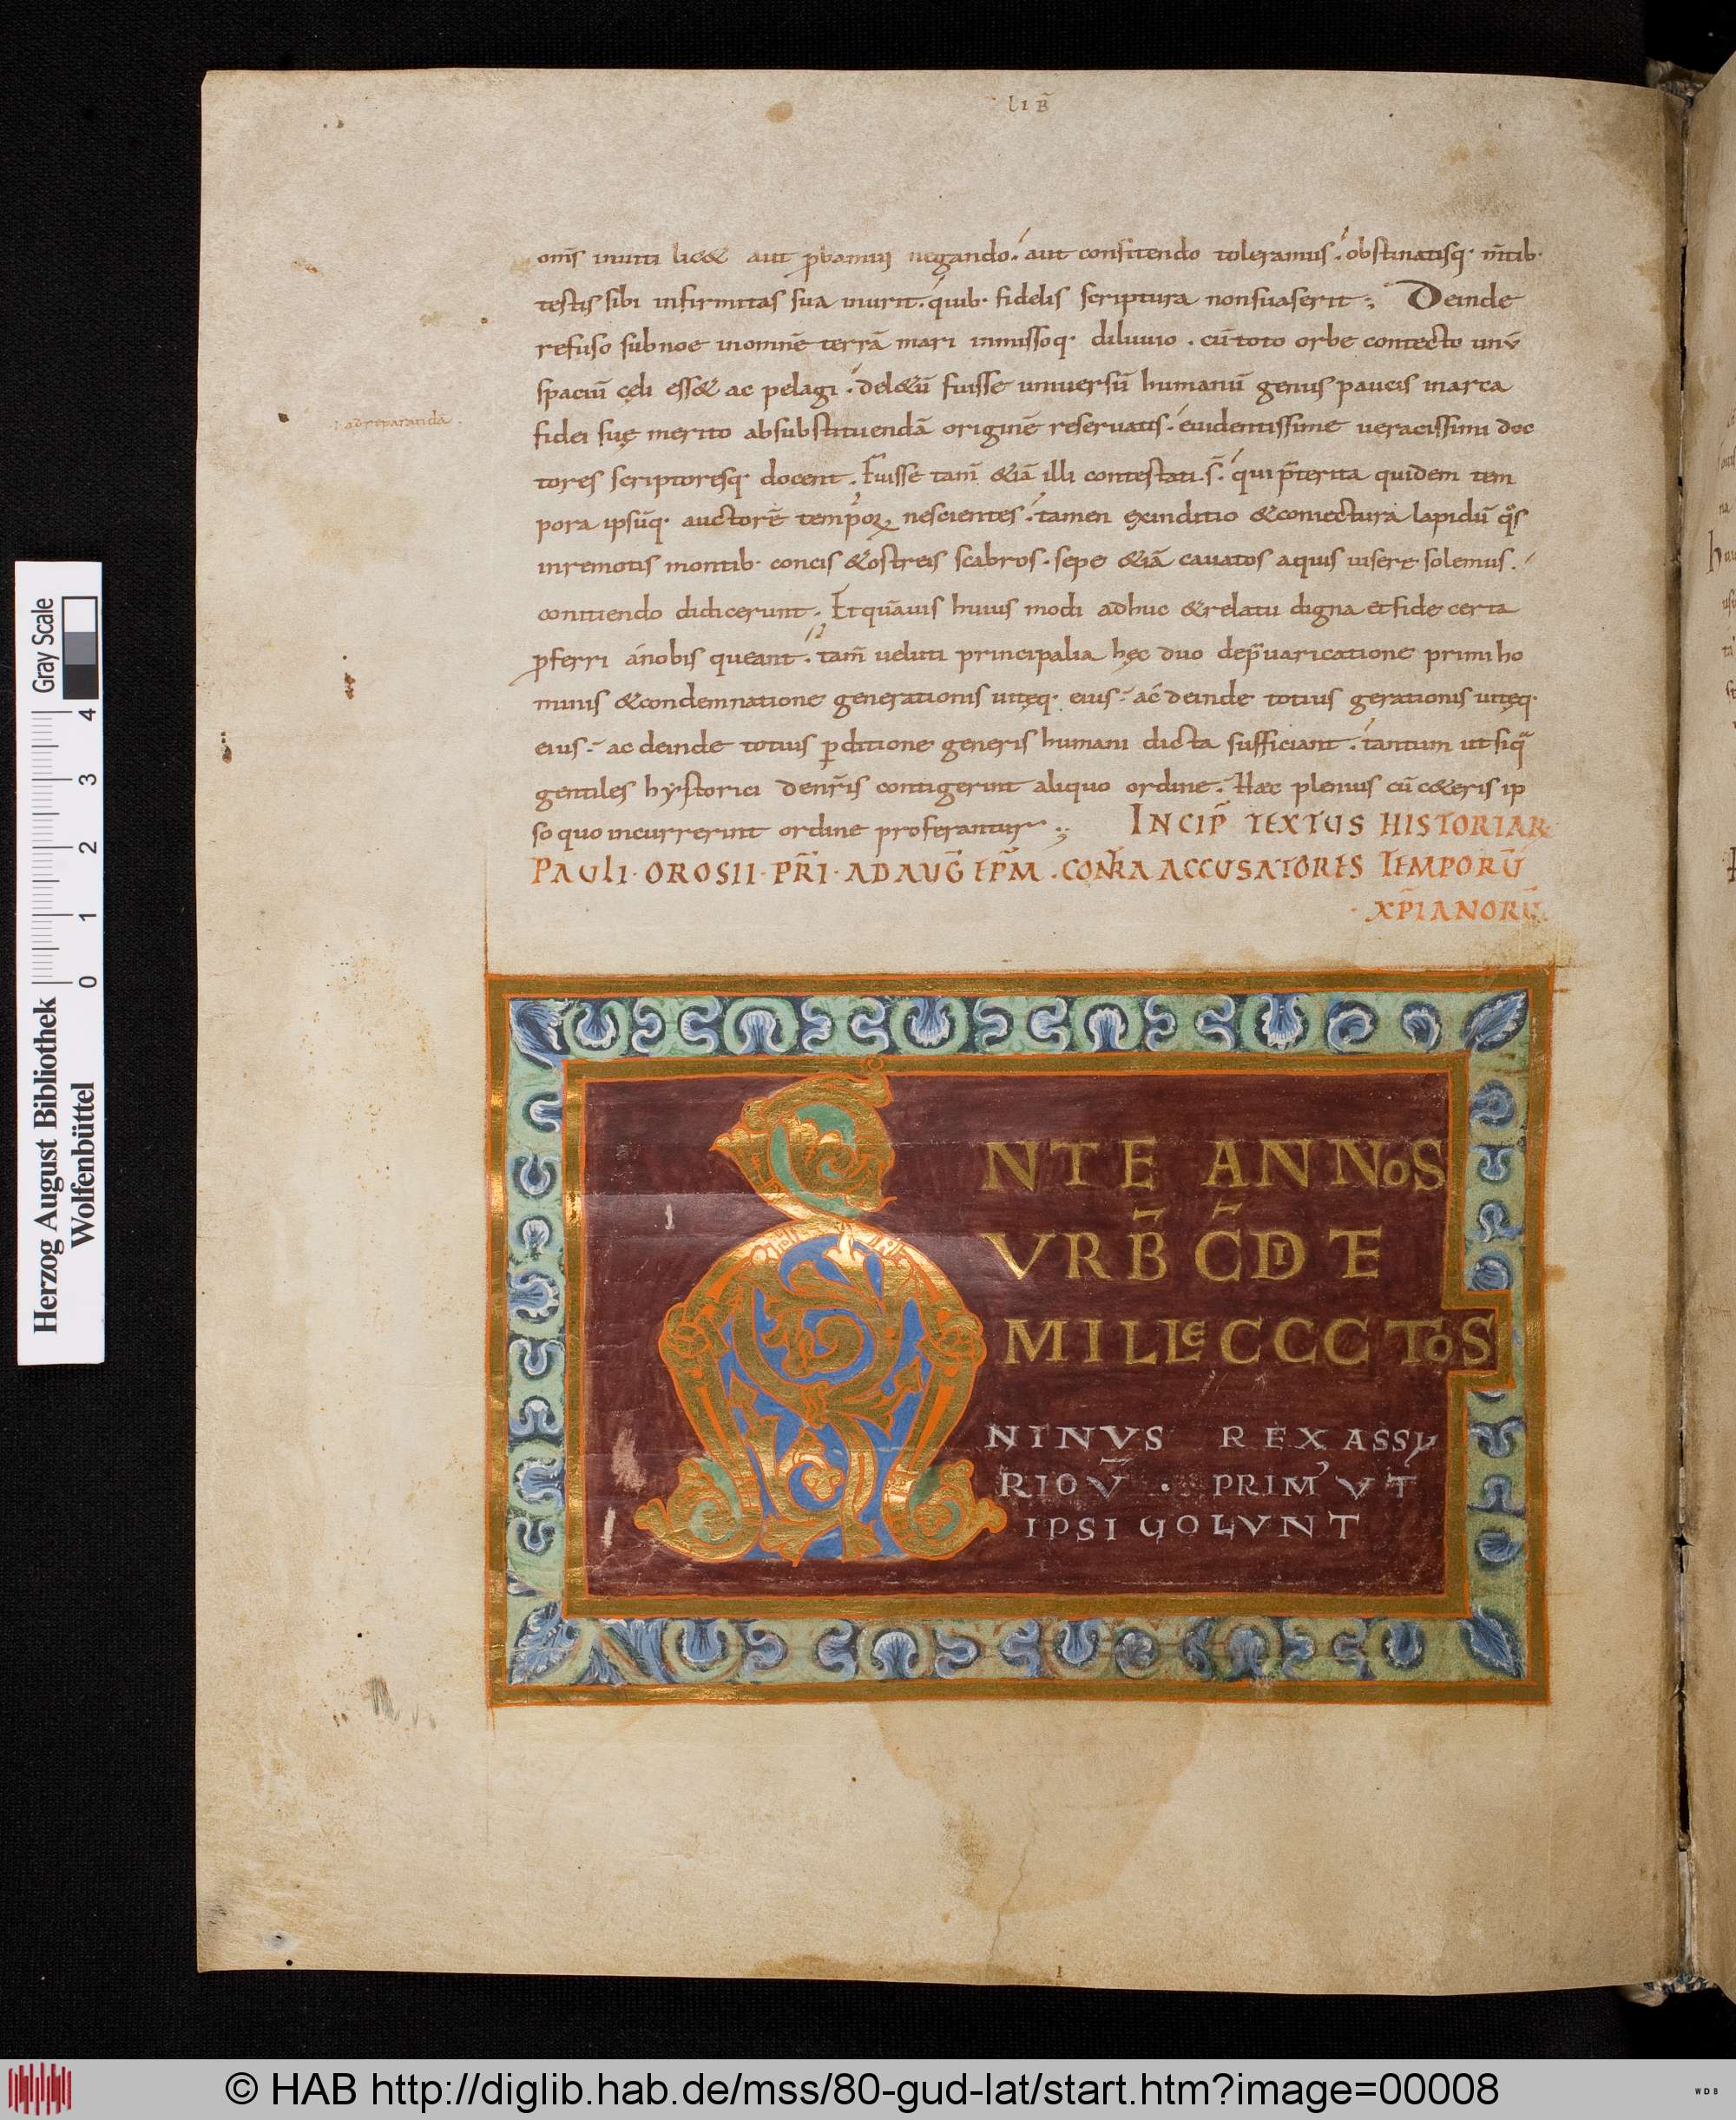 LIB̄
om̄s inuiti lic& aut p̱bamus negando. aut confitendo toleramus. obstinatisq· m̄tib·
testis sibi infirmitas sua inurit. quib· fidelis scriptura nonsuaserit; Deinde
refuso subnoe inomnē terrā mari inmissoq· diluuio. cū toto orbe contecto unū
spaciū cęli ess& ac pelagi. del&ū fuisse uniuersū humanū genus paucis inarca
fidei suę merito absubstituendā originē reseruatis. euidentissime ueracissimi doc
tores scriptoresq· docent. Fuisse tam̄ &iā illi contestati s̄. qui p̄terita quidem tem
pora ipsūq· auctorē temporꝝ nescientes. tamen ex inditio &coniectura lapidū q̊s
inremotis montib· concis &ostreis scabros. sepe &iā cauatos aquis uisere solemus.
coniciendo didicerunt. Et quāuis huius modi adhuc &relatu digna et fide certa
ꝓferri anobis queant. tam̄ ueluti principalia hęc duo dep̄uaricatione primi ho
minis &condemnatione generationis uitęq· eius. ac deinde totius gerationis uitęq·
eius. ac deinde totius ꝑditione generis humani dicta sufficiant. tantum ut siqͣ
gentiles hystorici denr̄is contigerint aliquo ordine. Haec plenius cū c&eris ip
so quo incurrerint ordine proferantur;
INCIP̄ TEXTUS HISTORIAꝜ
PAULI· OROSII· PR̄I· AD AUḠ EP̄M. CONTRA ACCUSATORES TEMPORŪ
XP̄IANORŪ
ad reparandā
NTE ANNOS
VRB̄ C̄DITE
MILLE CCCCTOS
NINVS REX ASSY
RIOV̄ · PRIM' VT
IPSI UOLVNT
Herzog August Bibliothek
Wolfenbüttel
0 1 2 3 4
Gray Scale
© HAB http://diglib.hab.de/mss/80-gud-lat/start.htm?image=00008
WDB